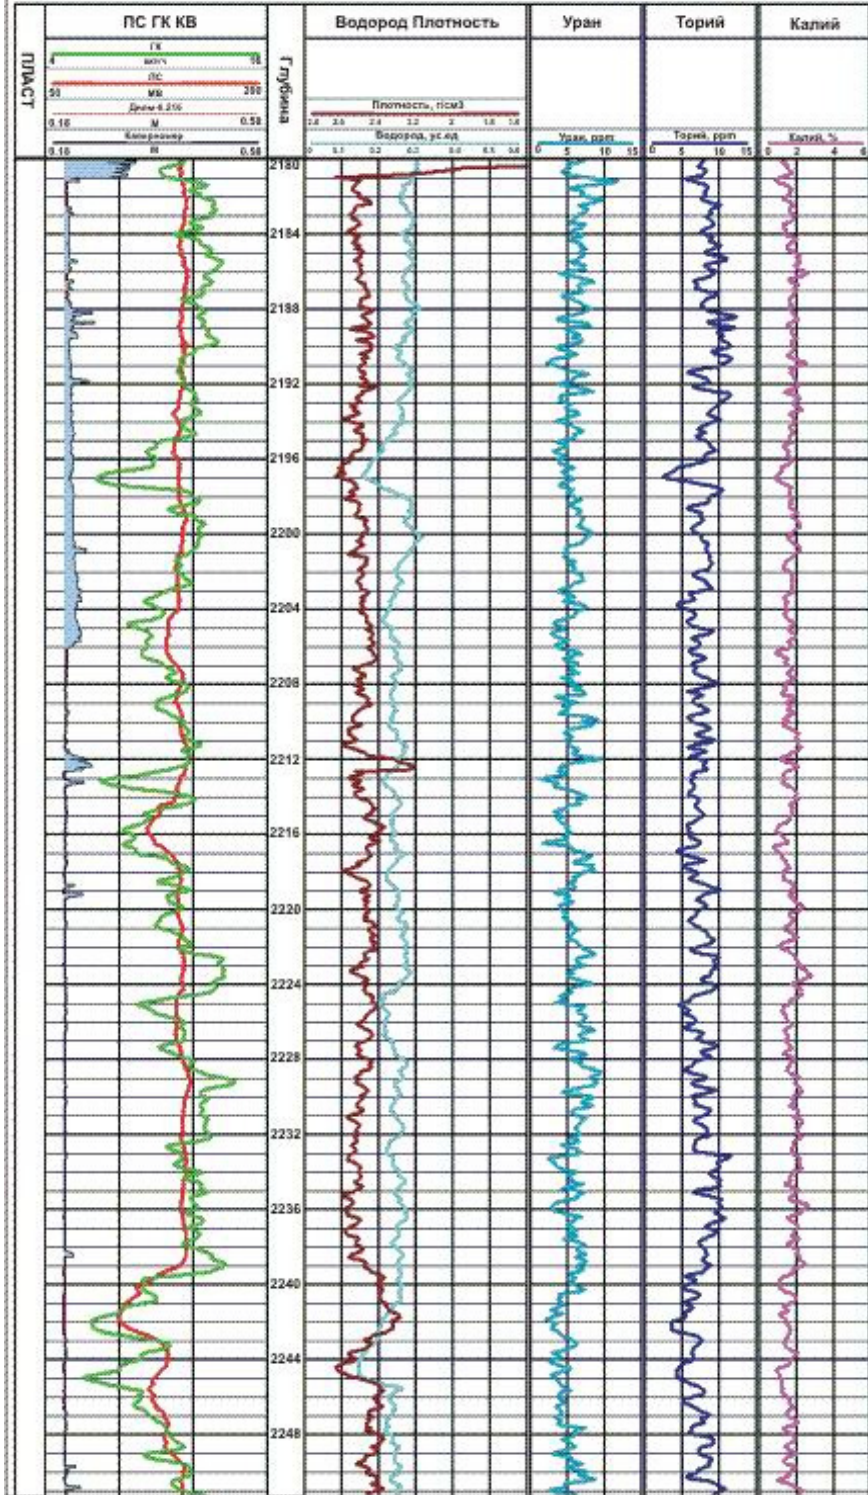 ПЛАСТ
ПС ГК КВ
ГК
4 мкР/ч 16
ПС
50 МВ 200
Диам-0.216
0.18 М 0.58
Каверномер
0.18 М 0.58
Глубина
Водород Плотность
Плотность, г/см3
Водород, ус.ед
Уран
Уран, ppm
0 5 10 15
Торий
Торий, ppm
0 5 10 15
Калий
Калий, %
0 2 4 6
2180
2184
2188
2192
2196
2200
2204
2208
2212
2216
2220
2224
2228
2232
2236
2240
2244
2248